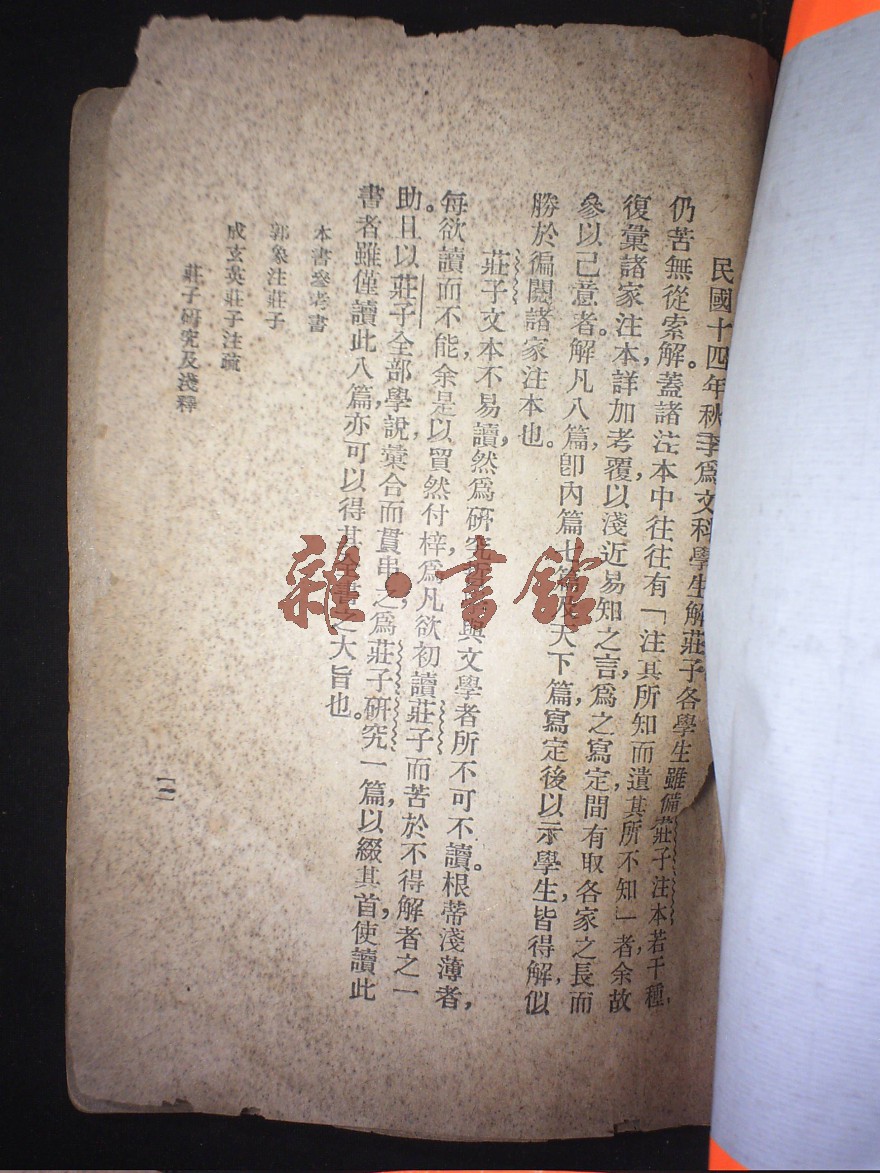 民國十四年秋季爲文科學生解莊子各學生雖備莊子注本若干種，
仍苦無從索解。蓋諸注本中往往有「注其所知而遺其所不知」者余故
復彙諸家注本，詳加考覆，以淺近易知之言，爲之寫定，間有取各家之長而
參以己意者。解凡八篇，卽內篇七篇及天下篇，寫定後以示學生，皆得解，似
勝於徧閱諸家注本也。
莊子文本不易讀，然爲研究與文學者所不可不讀。根蒂淺薄者，
每欲讀而不能，余是以貿然付梓，爲凡欲初讀莊子而苦於不得解者之一
助。且以莊子全部學說，彙合而貫串之，爲莊子研究一篇，以綴其首，使讀此
書者，雖僅讀此八篇，亦可以得其全書之大旨也。
本書參考書
郭象注莊子
成玄英莊子注疏
莊子研究及淺釋
[一]
雜·書館